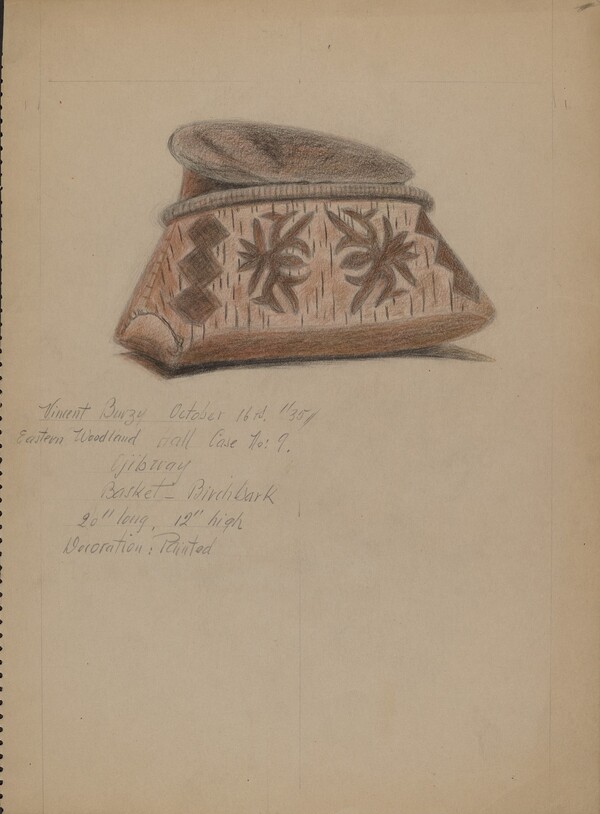 Vincent Burzy October 16th. 1935
Eastern Woodland Hall Case No: 9.
Ojibway
Basket - Birchbark
20" long, 12" high
Decoration: Painted